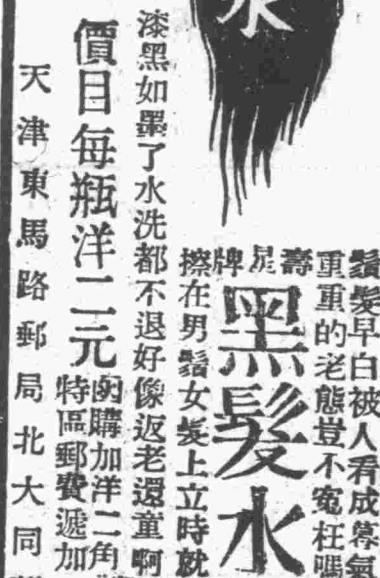 水
鬚髮早白被人看成暮氣
重重的老態豈不寃枉嗎
壽星牌
黑髮水
擦在男鬚女髮上立時就
漆黑如墨了水洗都不退好像返老還童啊
價目每瓶洋二元
函購加洋二角
特區郵費遞加
天津東馬路郵局北大同